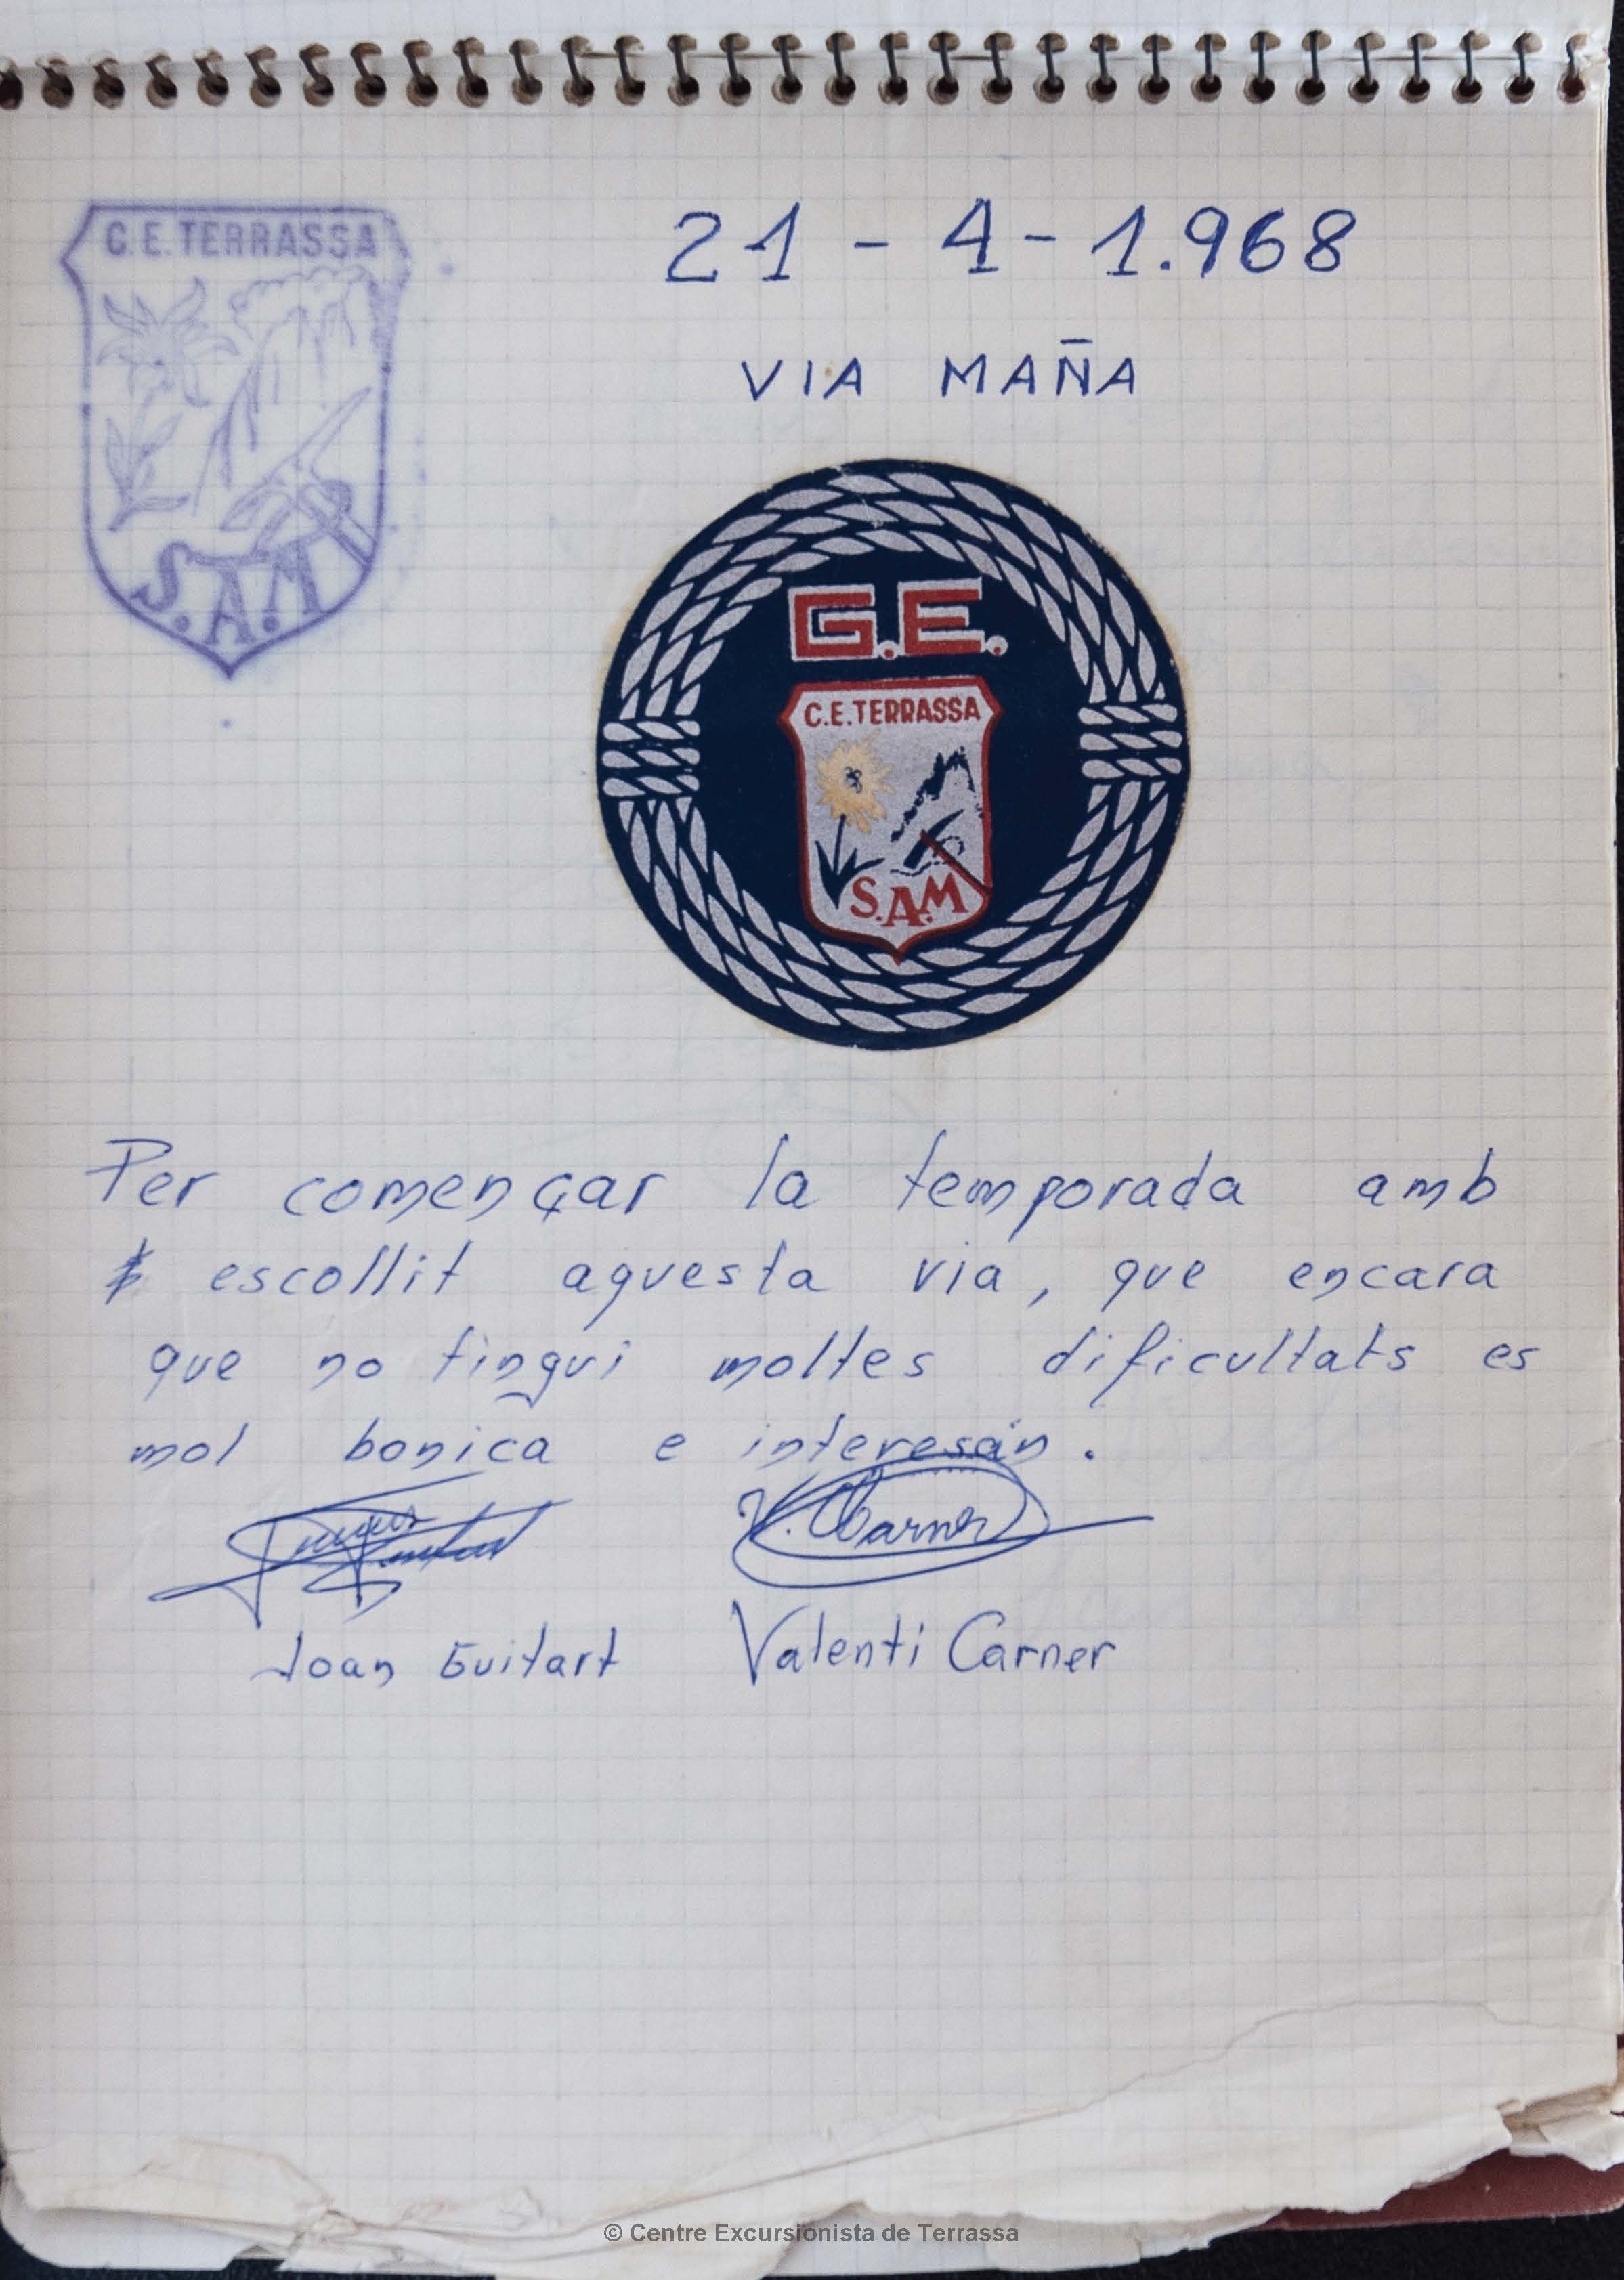 C.E. TERRASSA
S.A.M
21 - 4 - 1.968
VIA MAÑA
G.E.
C.E. TERRASSA
S.A.M
Per començar la temporada amb
escollit aquesta via, que encara
que no tingui moltes dificultats es
mol bonica e interesán.
V. Carner
Joan Guitart Valenti Carner
© Centre Excursionista de Terrassa